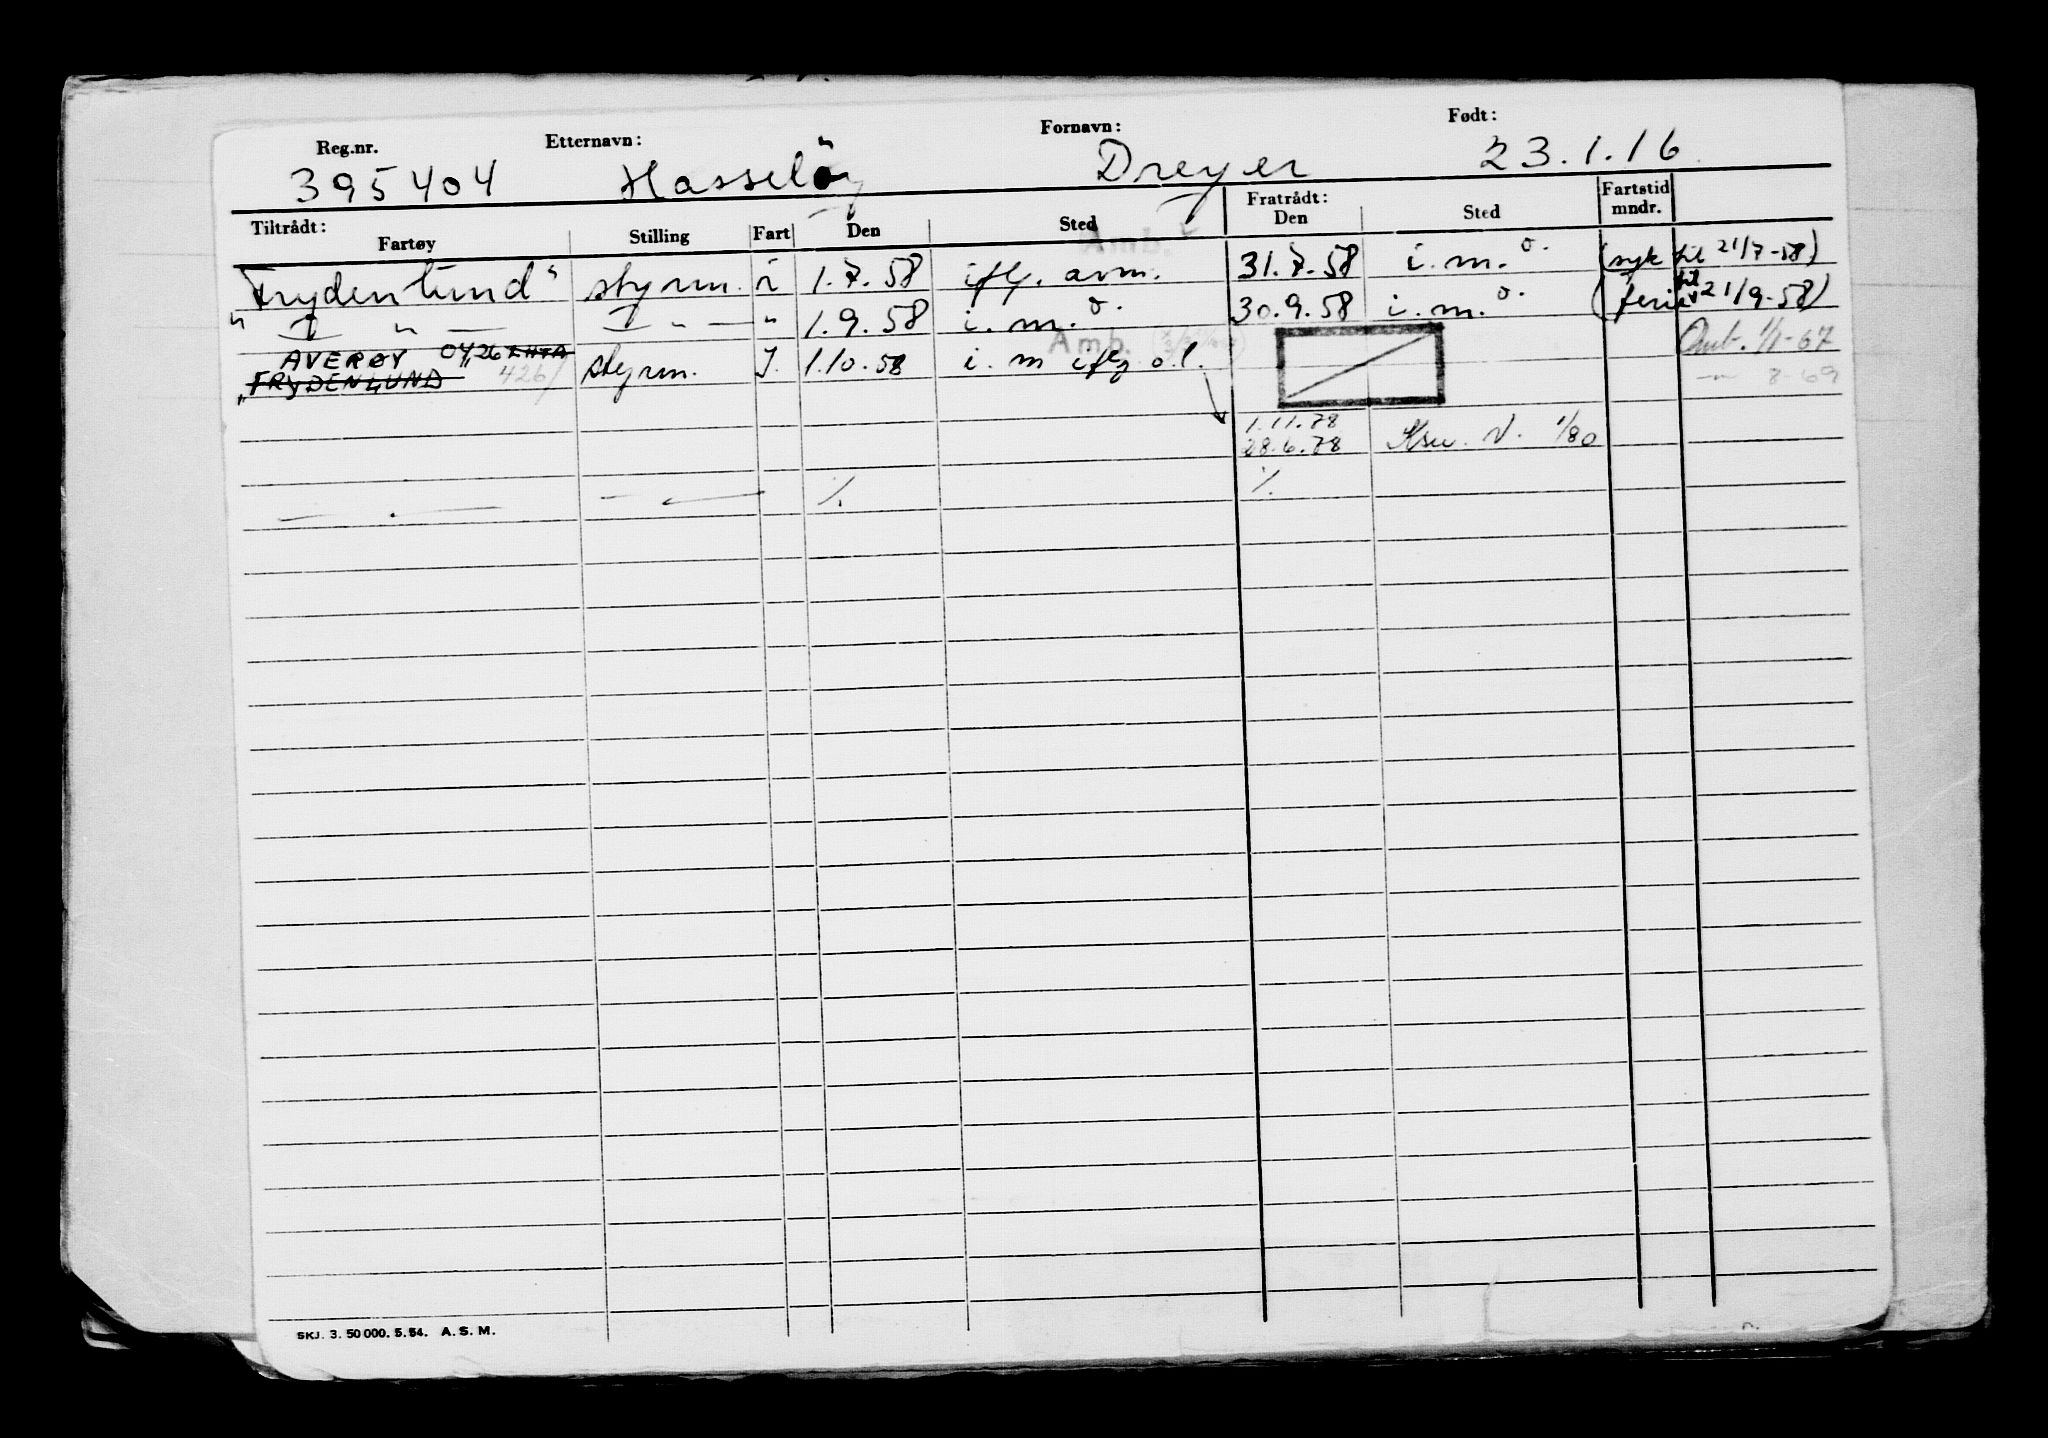 Reg.nr. Etternavn: Fornavn: Født:
395404 Hasseløy Dreyer 23.1.16
Tiltrådt: Fratrådt: Fartstid mndr.
Fartøy Stilling Fart Den Sted Den Sted
Amb.
"Frydenlund" styrm. i 1.7.58 iflg. avm. 31.7.58 i.m.o. (syk til 21/7-58)
" " " 1.9.58 i.m.o. 30.9.58 i.m.o. (ferie til 21/9-58)
Amb. Amb. 1/1-67
AVERØY 0426
"FRYDENLUND 426/ styrm. I. 1.10.58 i.m iflg o.l. 8-69
1.11.78
28.6.78 1/80
SKJ. 3. 50 000. 5.54. A. S. M.